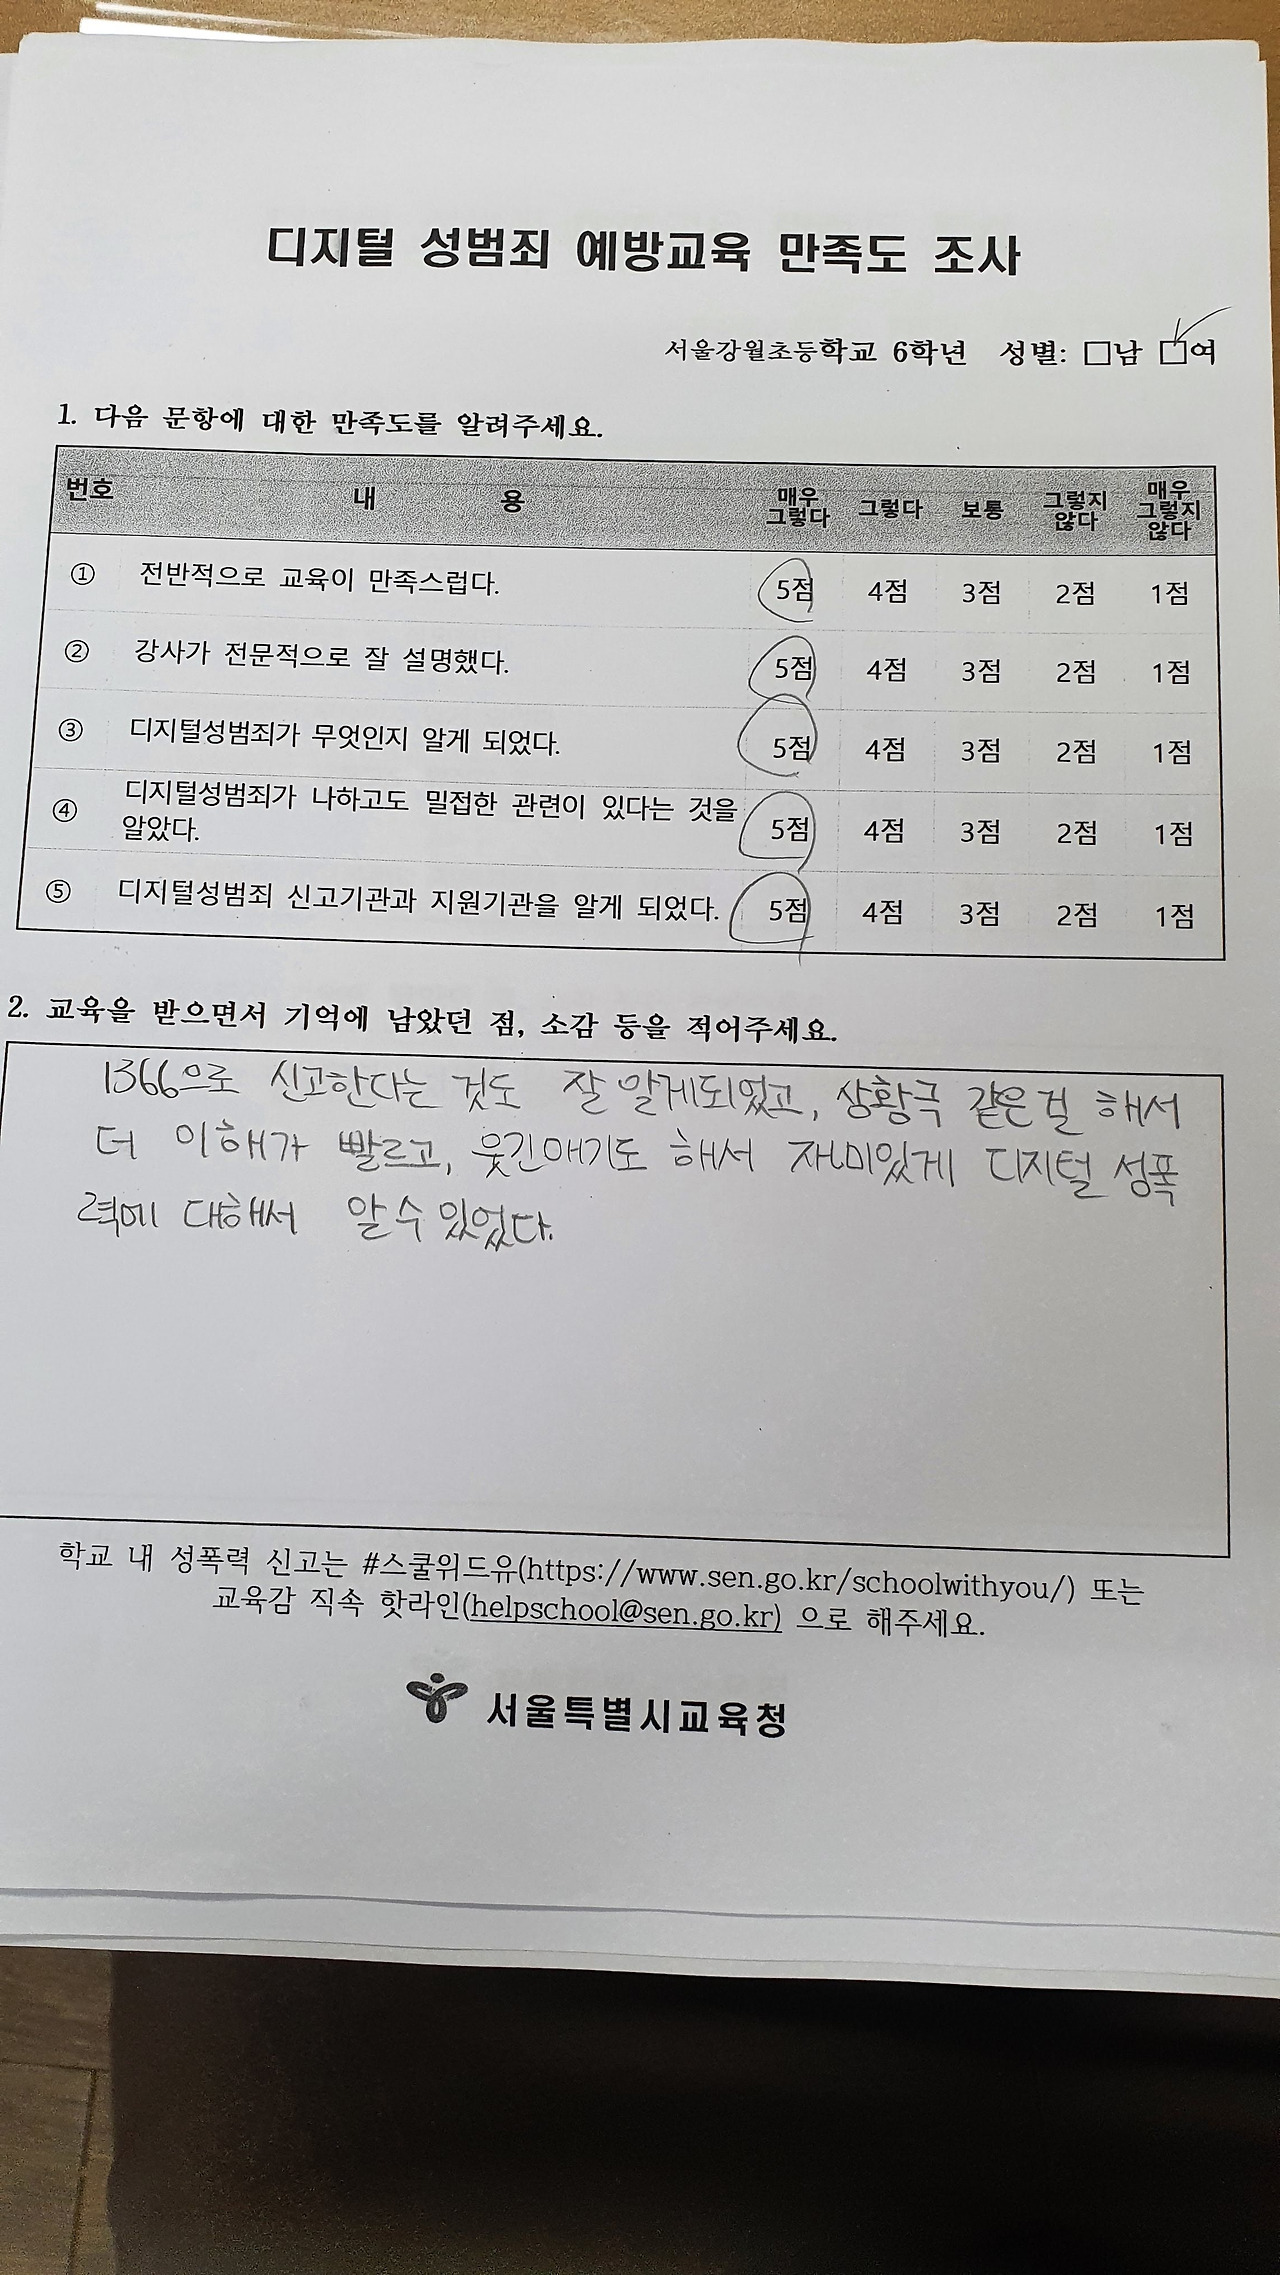 디지털 성범죄 예방교육 만족도 조사
서울강월초등학교 6학년 성별: □남 □여
1. 다음 문항에 대한 만족도를 알려주세요.
번호 내 용 매우 그렇다 그렇다 보통 그렇지 않다 매우 그렇지 않다
① 전반적으로 교육이 만족스럽다. 5점 4점 3점 2점 1점
② 강사가 전문적으로 잘 설명했다. 5점 4점 3점 2점 1점
③ 디지털성범죄가 무엇인지 알게 되었다. 5점 4점 3점 2점 1점
④ 디지털성범죄가 나하고도 밀접한 관련이 있다는 것을
알았다. 5점 4점 3점 2점 1점
⑤ 디지털성범죄 신고기관과 지원기관을 알게 되었다. 5점 4점 3점 2점 1점
2. 교육을 받으면서 기억에 남았던 점, 소감 등을 적어주세요.
1366으로 신고한다는 것도 잘 알게되었고, 상황극 같은걸 해서
더 이해가 빠르고, 웃긴얘기도 해서 재미있게 디지털 성폭
력에 대해서 알수있었다.
학교 내 성폭력 신고는 #스쿨위드유(https://www.sen.go.kr/schoolwithyou/) 또는
교육감 직속 핫라인(helpschool@sen.go.kr) 으로 해주세요.
서울특별시교육청